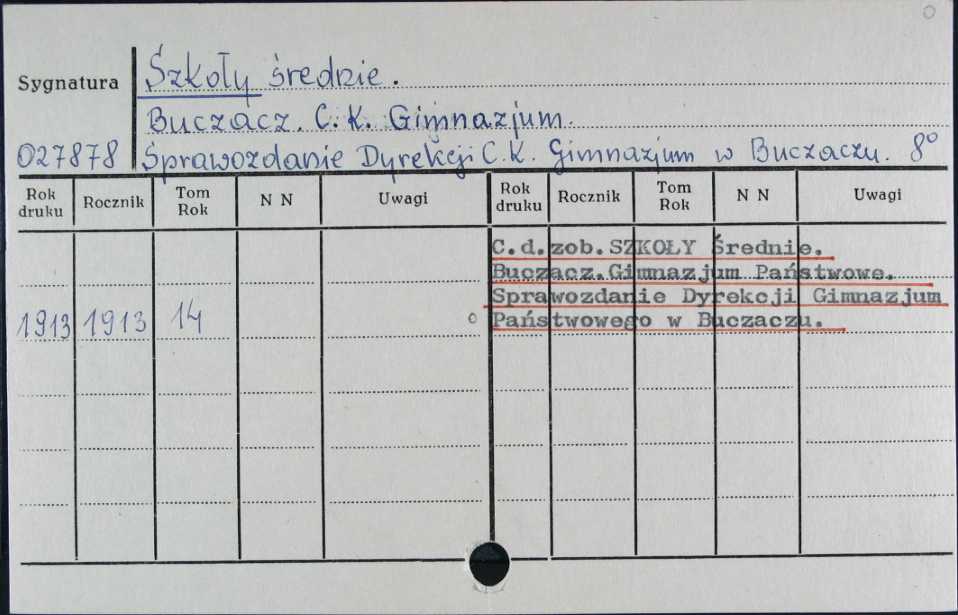 0
Sygnatura Szkoły średnie.
Buczacz. C. K. Gimnazjum.
027878 Sprawozdanie Dyrekcji C. K. Gimnazjum w Buczaczu. 8°
Rok druku Rocznik Tom Rok N N Uwagi Rok druku Rocznik Tom Rok N N Uwagi
C.d.zob.SZKOŁY Średnie.
Buczacz.Gimnazjum Państwowe.
Sprawozdanie Dyrekcji Gimnazjum
1913 1913 14 Państwowego w Buczaczu.